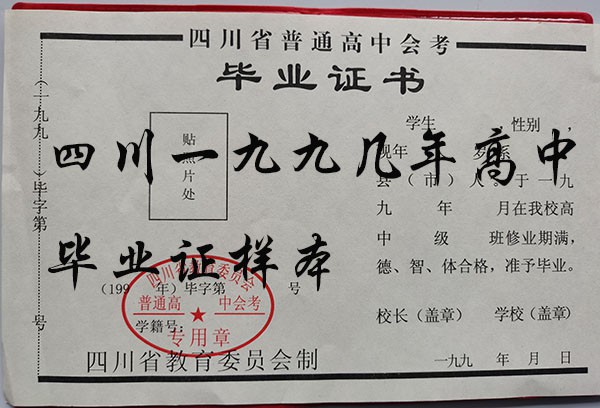 四川省普通高中会考
毕业证书
（一九九 ）毕字第 号
贴照片处
学生 ，性别 ，
现年 岁，系
县（市）人。于一九
九 年 月在我校高
中 级 班修业期满，
德、智、体合格，准予毕业。
校长（盖章） 学校（盖章）
一九九 年 月 日
（199 年）毕字第 号
学籍号：
四川省教育委员会
普通高 中会考
专用章
四川省教育委员会制
四川一九九几年高中
毕业证样本